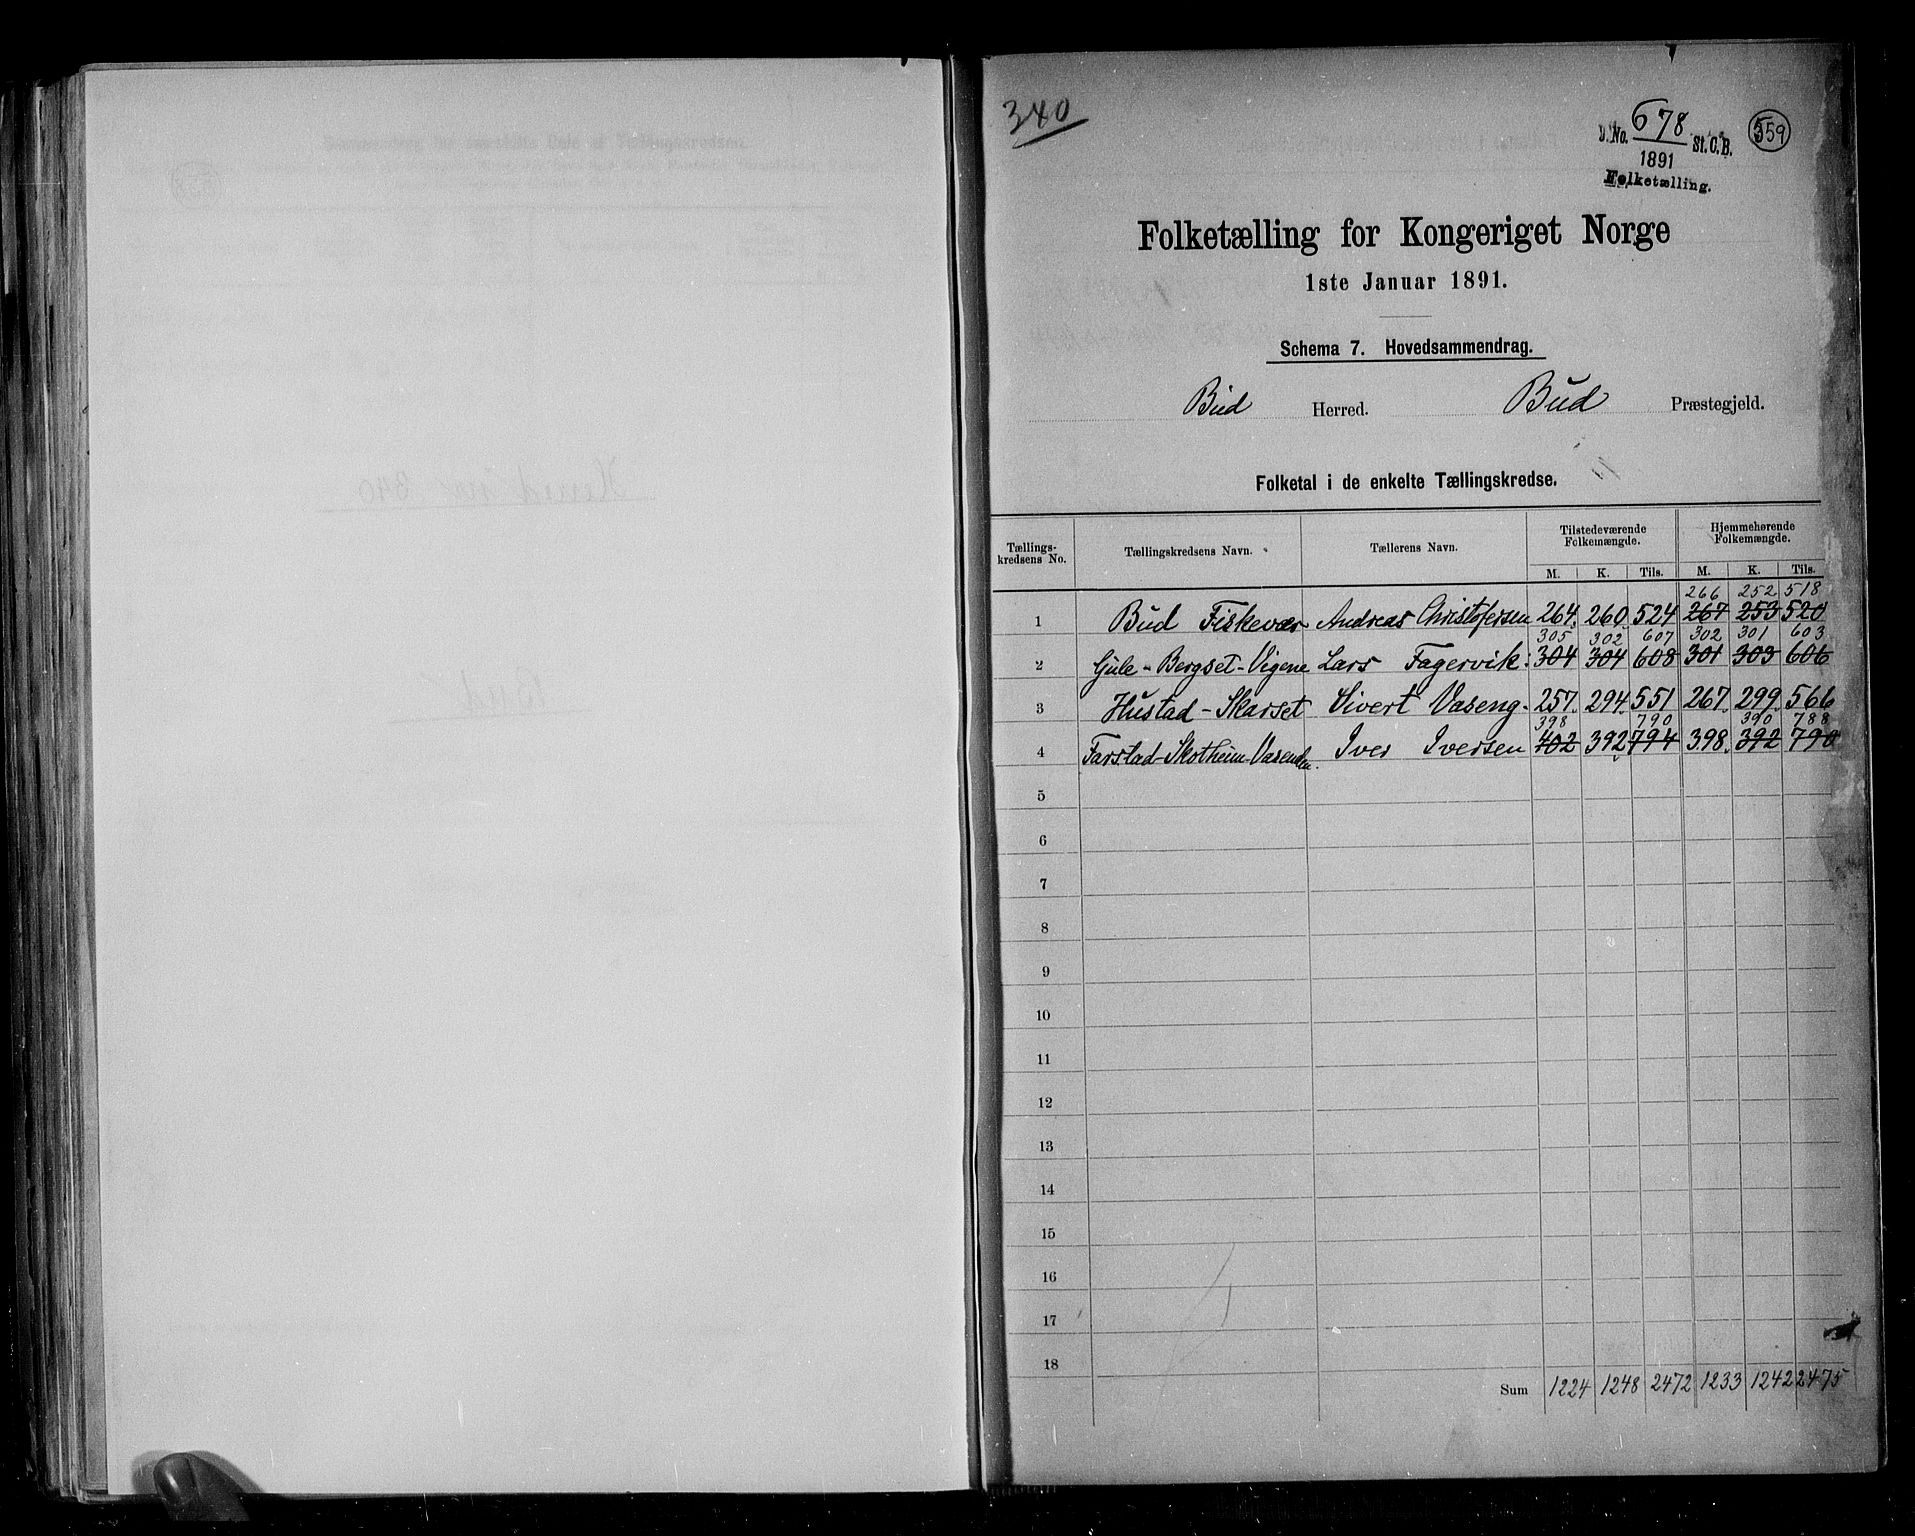 340
J. No. 678 St. C. B. 359
1891
Folketælling.
Folketælling for Kongeriget Norge
1ste Januar 1891.
Schema 7. Hovedsammendrag.
Bud Herred. Bud Præstegjeld.
Folketal i de enkelte Tællingskredse.
Tællings-kredsens No. Tællingskredsens Navn. Tællerens Navn. Tilstedeværende Folkemængde. Hjemmehørende Folkemængde.
M. K. Tils. M. K. Tils.
266 252 518
1 Bud Fiskevær Andreas Christofersen 264. 260. 524 267 253 520
305 302 607 302 301 603
2 Gule-Bergset-Vigene Lars Fagervik: 304 304 608 301 303 606
3 Hustad-Skarset Sivert Vaseng. 257. 294. 551 267. 299. 566
398 790 390 788
4 Farstad-Skotheim-Vasenden. Iver Iversen 402 392 794 398. 392 790
5
6
7
8
9
10
11
12
13
14
15
16
17
18
Sum 1224 1248 2472 1233 1242 2475